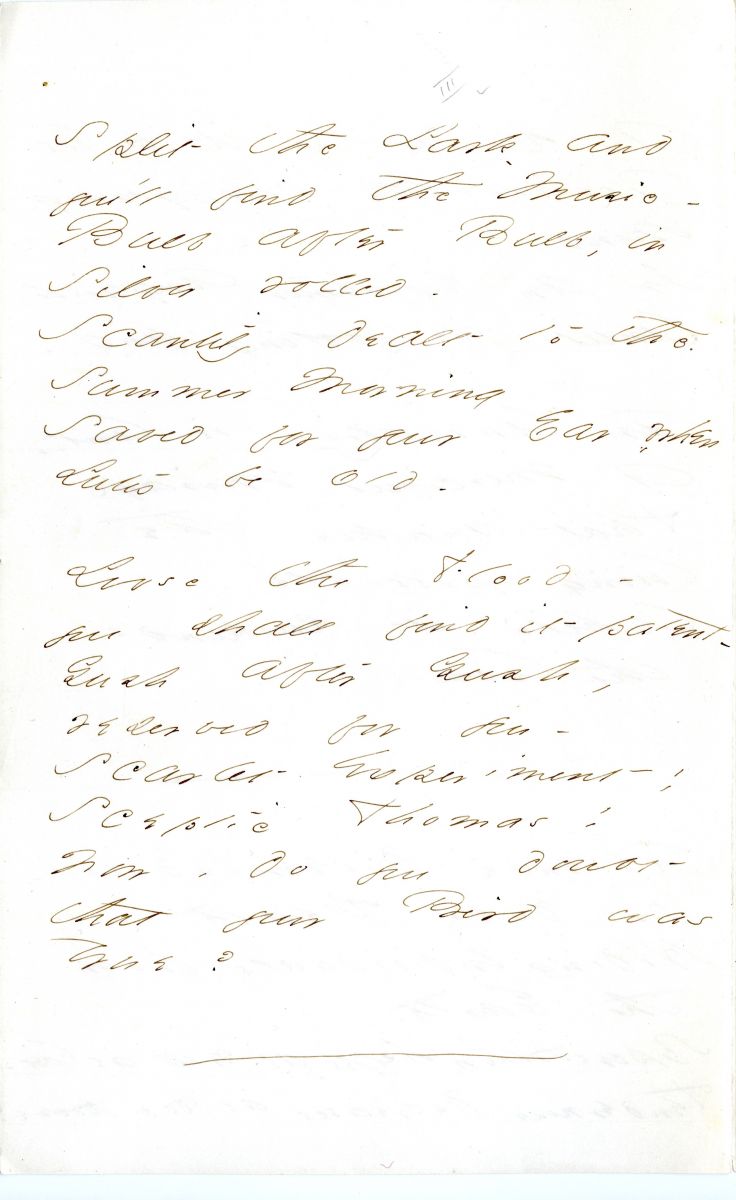 III
Split the Lark and
you'll find the Music -
Bulb after Bulb, in
Silver rolled -
Scantily dealt to the
Summer Morning
Saved for your Ear, when
Lutes be old -
Loose the Flood -
you shall find it patent -
Gush after Gush,
reserved for you -
Scarlet Experiment!
Sceptic Thomas!
Now, do you doubt
that your Bird was
true?